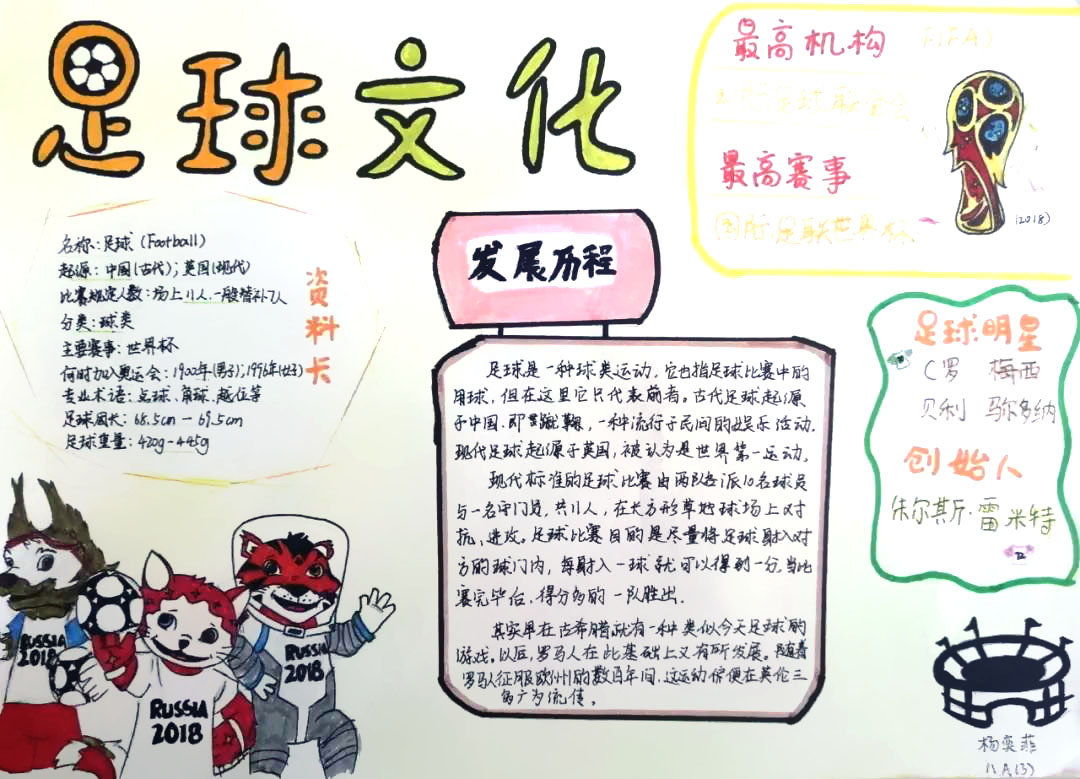 足球文化
最高机构 FIFA
国际足球联合会
最高赛事
国际足联世界杯
(2018)
名称：足球（Football）
起源：中国(古代)；英国(现代)
比赛规定人数：场上11人.一般替补7人
分类：球类
主要赛事：世界杯
何时加入奥运会：1900年(男子)；1996年(女子)
专业术语：点球、角球、越位等
足球周长：68.5cm－69.5cm
足球重量：420g－445g
资料卡
发展历程
足球是一种球类运动，它也指足球比赛中的
用球，但在这里它只代表前者。古代足球起源
于中国，即蹴鞠，一种流行于民间的娱乐活动.
现代足球起源于英国，被认为是世界第一运动。
现代标准的足球比赛由两队各派10名球员
与一名守门员，共11人，在长方形草地球场上对
抗、进攻。足球比赛目的是尽量将足球射入对
方的球门内，每射入一球就可以得到一分，当比
赛完毕后，得分多的一队胜出.
其实早在古希腊就有一种类似今天足球的
游戏，以后，罗马人在此基础上又有所发展。随着
罗马人征服欧州的数百年间，这运动惊便在英伦三
岛广为流传。
足球明星
C罗 梅西
贝利 马尔多纳
创始人
朱尔斯·雷米特
RUSSIA
2018
RUSSIA
2018
RUSSIA
2018
杨奕菲